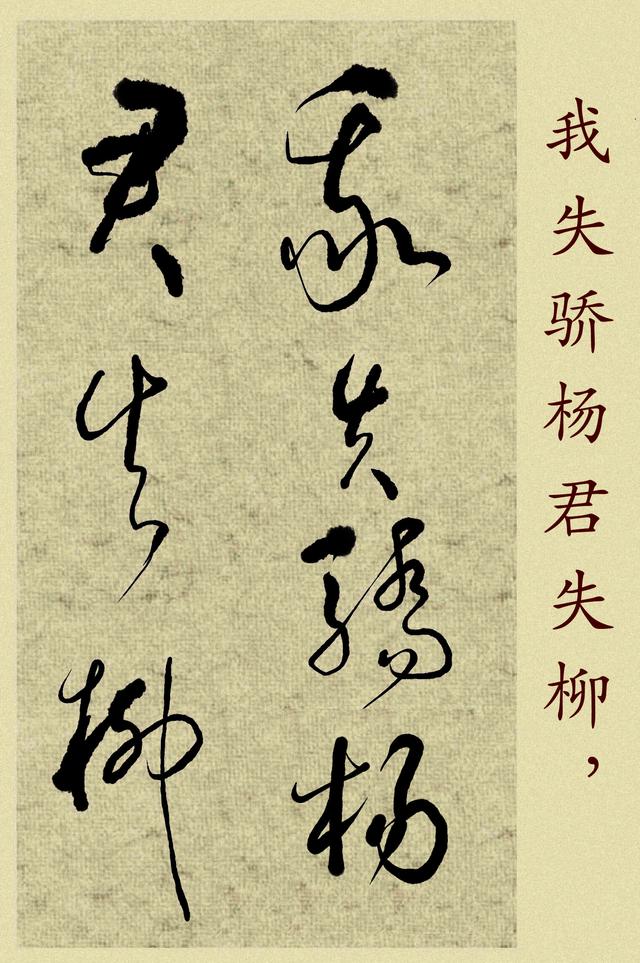 我失骄杨君失柳，
我失驕楊
君失柳